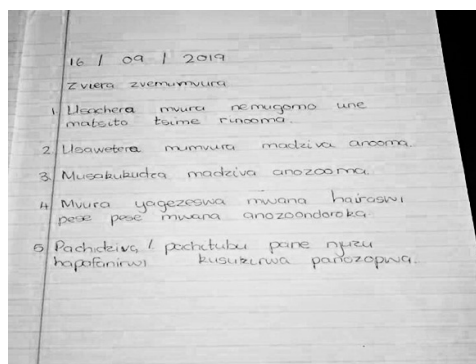 16 / 09 / 2019
Zviera zvemumvura
1. Usachera mvura nemugomo une
matsito tsime rinooma.
2. Usawetera mumvura madziva anooma.
3. Musakukudza madziva anozooma.
4. Mvura yagezeswa mwana hairaswi
pese pese mwana anozoondoroka
5. Pachidziva / pachitubu pane njuzu
hapafanirwi kusukirwa panozopwa.